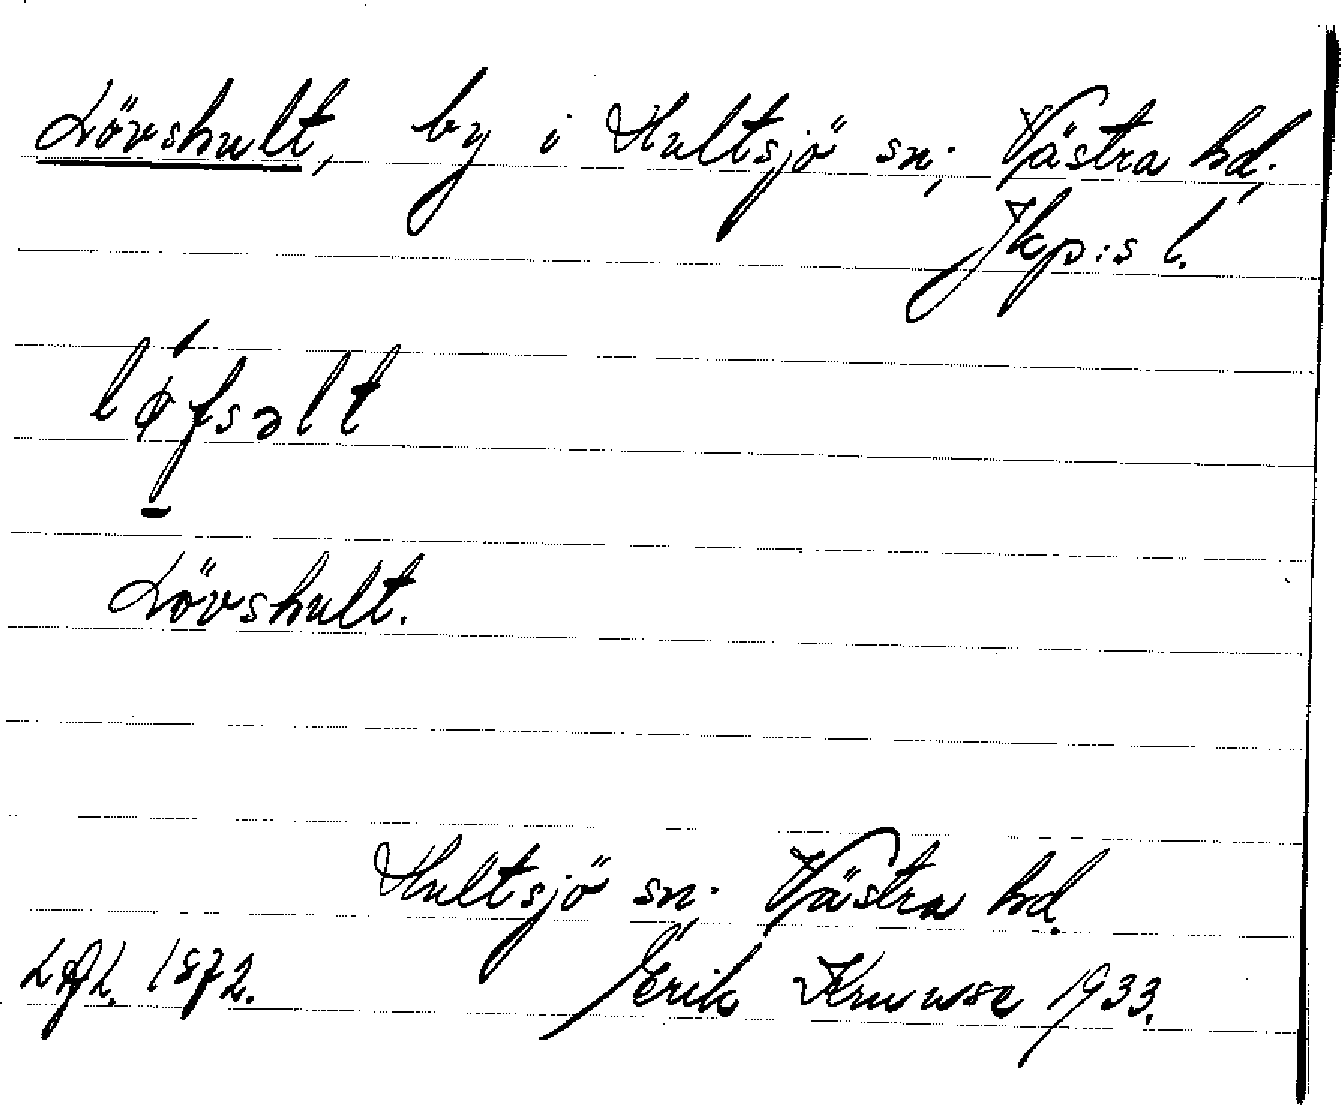 Lövshult, by i Hultsjö sn, Västra hd,
Jkp:s l.
lǿfsəlt
Lövshult.
Hultsjö sn, Västra hd.
1872. Erik Kruuse 1933.